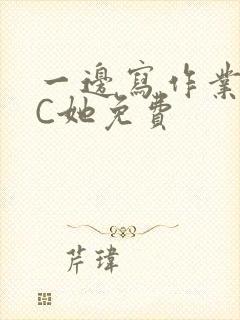 一邊寫作業
C她免費
芹瑋